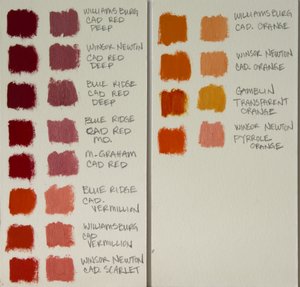 WILLIAMSBURG
CAD RED
DEEP
WINSOR NEWTON
CAD RED
DEEP
BLUE RIDGE
CAD RED
DEEP
BLUE RIDGE
CAD RED
MD.
M. GRAHAM
CAD RED
BLUE RIDGE
CAD.
VERMILLION
WILLIAMSBURG
CAD
VERMILLION
WINSOR NEWTON
CAD. SCARLET
WILLIAMSBURG
CAD. ORANGE
WINSOR NEWTON
CAD. ORANGE
GAMBLIN
TRANSPARENT
ORANGE
WINSOR NEWTON
PYRROLE
ORANGE